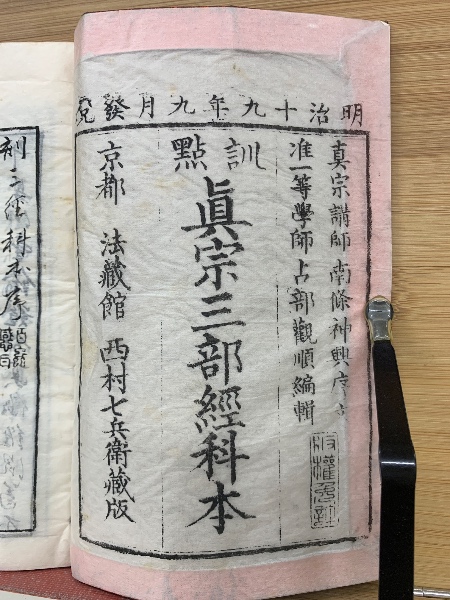 明治十九年九月發兌
真宗講師 南條神興序
准一等學師 占部觀順編輯
版權免許
訓點
眞宗三部經科本
京都 法藏館 西村七兵衛藏版
刻三經科本序